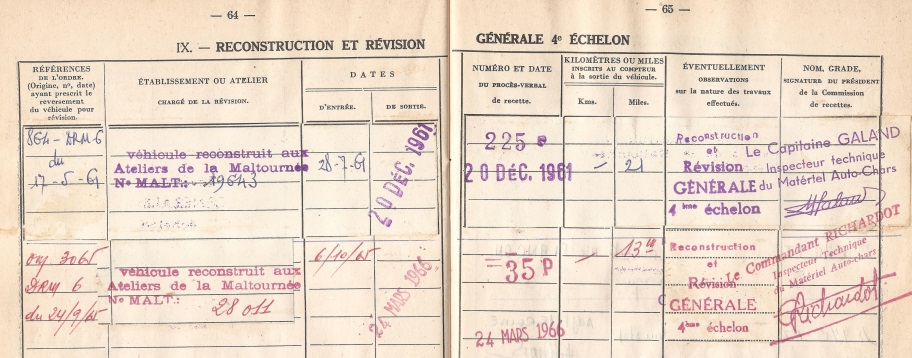 — 64 —
IX. — RECONSTRUCTION ET RÉVISION
RÉFÉRENCES
DE L'ORDRE.
(Origine, nº, date)
ayant prescrit le
reversement
du véhicule pour
révision.
ÉTABLISSEMENT OU ATELIER
CHARGÉ DE LA RÉVISION.
DATES
D'ENTRÉE.
DE SORTIE.
864 - DRM-6
du
17-5-61
véhicule reconstruit aux
Ateliers de la Maltournée
Nº MALT.: 19643
28-7-61
20 DÉC. 1961
ong 3065
DRM 6
du 24/9/65
véhicule reconstruit aux
Ateliers de la Maltournée
Nº MALT.:
28 011
6/10/65
24 MARS 1966
— 65 —
GÉNÉRALE 4e ÉCHELON
NUMÉRO ET DATE
DU PROCÈS-VERBAL
de recette.
KILOMÈTRES OU MILES
INSCRITS AU COMPTEUR
à la sortie du véhicule.
Kms.
Miles.
ÉVENTUELLEMENT
OBSERVATIONS
sur la nature des travaux
effectués.
NOM, GRADE,
SIGNATURE DU PRÉSIDENT
de la Commission
de recettes.
225 P
20 DÉC. 1961
- 21
Reconstruction
et
Révision
GÉNÉRALE
4ème échelon
Le Capitaine GALAND
Inspecteur technique
du Matériel Auto-Chars
35 P
24 MARS 1966
- 13
Reconstruction
et
Révision
GÉNÉRALE
4ème échelon
Le Commandant RICHARDOT
Inspecteur Technique
du Matériel Auto-chars
Richardot